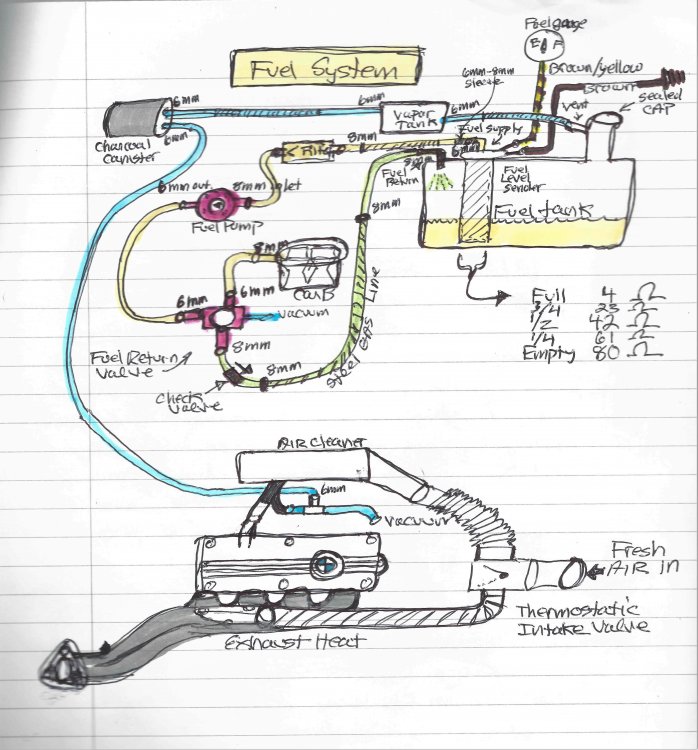 Fuel System
Fuel gauge
E F
Brown/yellow
Brown
sealed
CAP
vent
6mm-8mm
6mm
6mm
6mm
vapor
TANK
Charcoal
Canister
6mm
8mm
Fuel Supply
6mm
8mm
Fuel
Return
Fuel
Level
Sender
Fuel tank
6mm out
8mm inlet
Fuel Pump
8mm
8mm
Carb
6mm
6mm
vacuum
Fuel Return
Valve
8mm
Check
Valve
8mm
Steel GAS Line
Full 4 Ω
3/4 23 Ω
1/2 42 Ω
1/4 61 Ω
Empty 80 Ω
AIR Cleaner
6mm
vacuum
Fresh
AIR in
Thermostatic
Intake Valve
Exhaust Heat